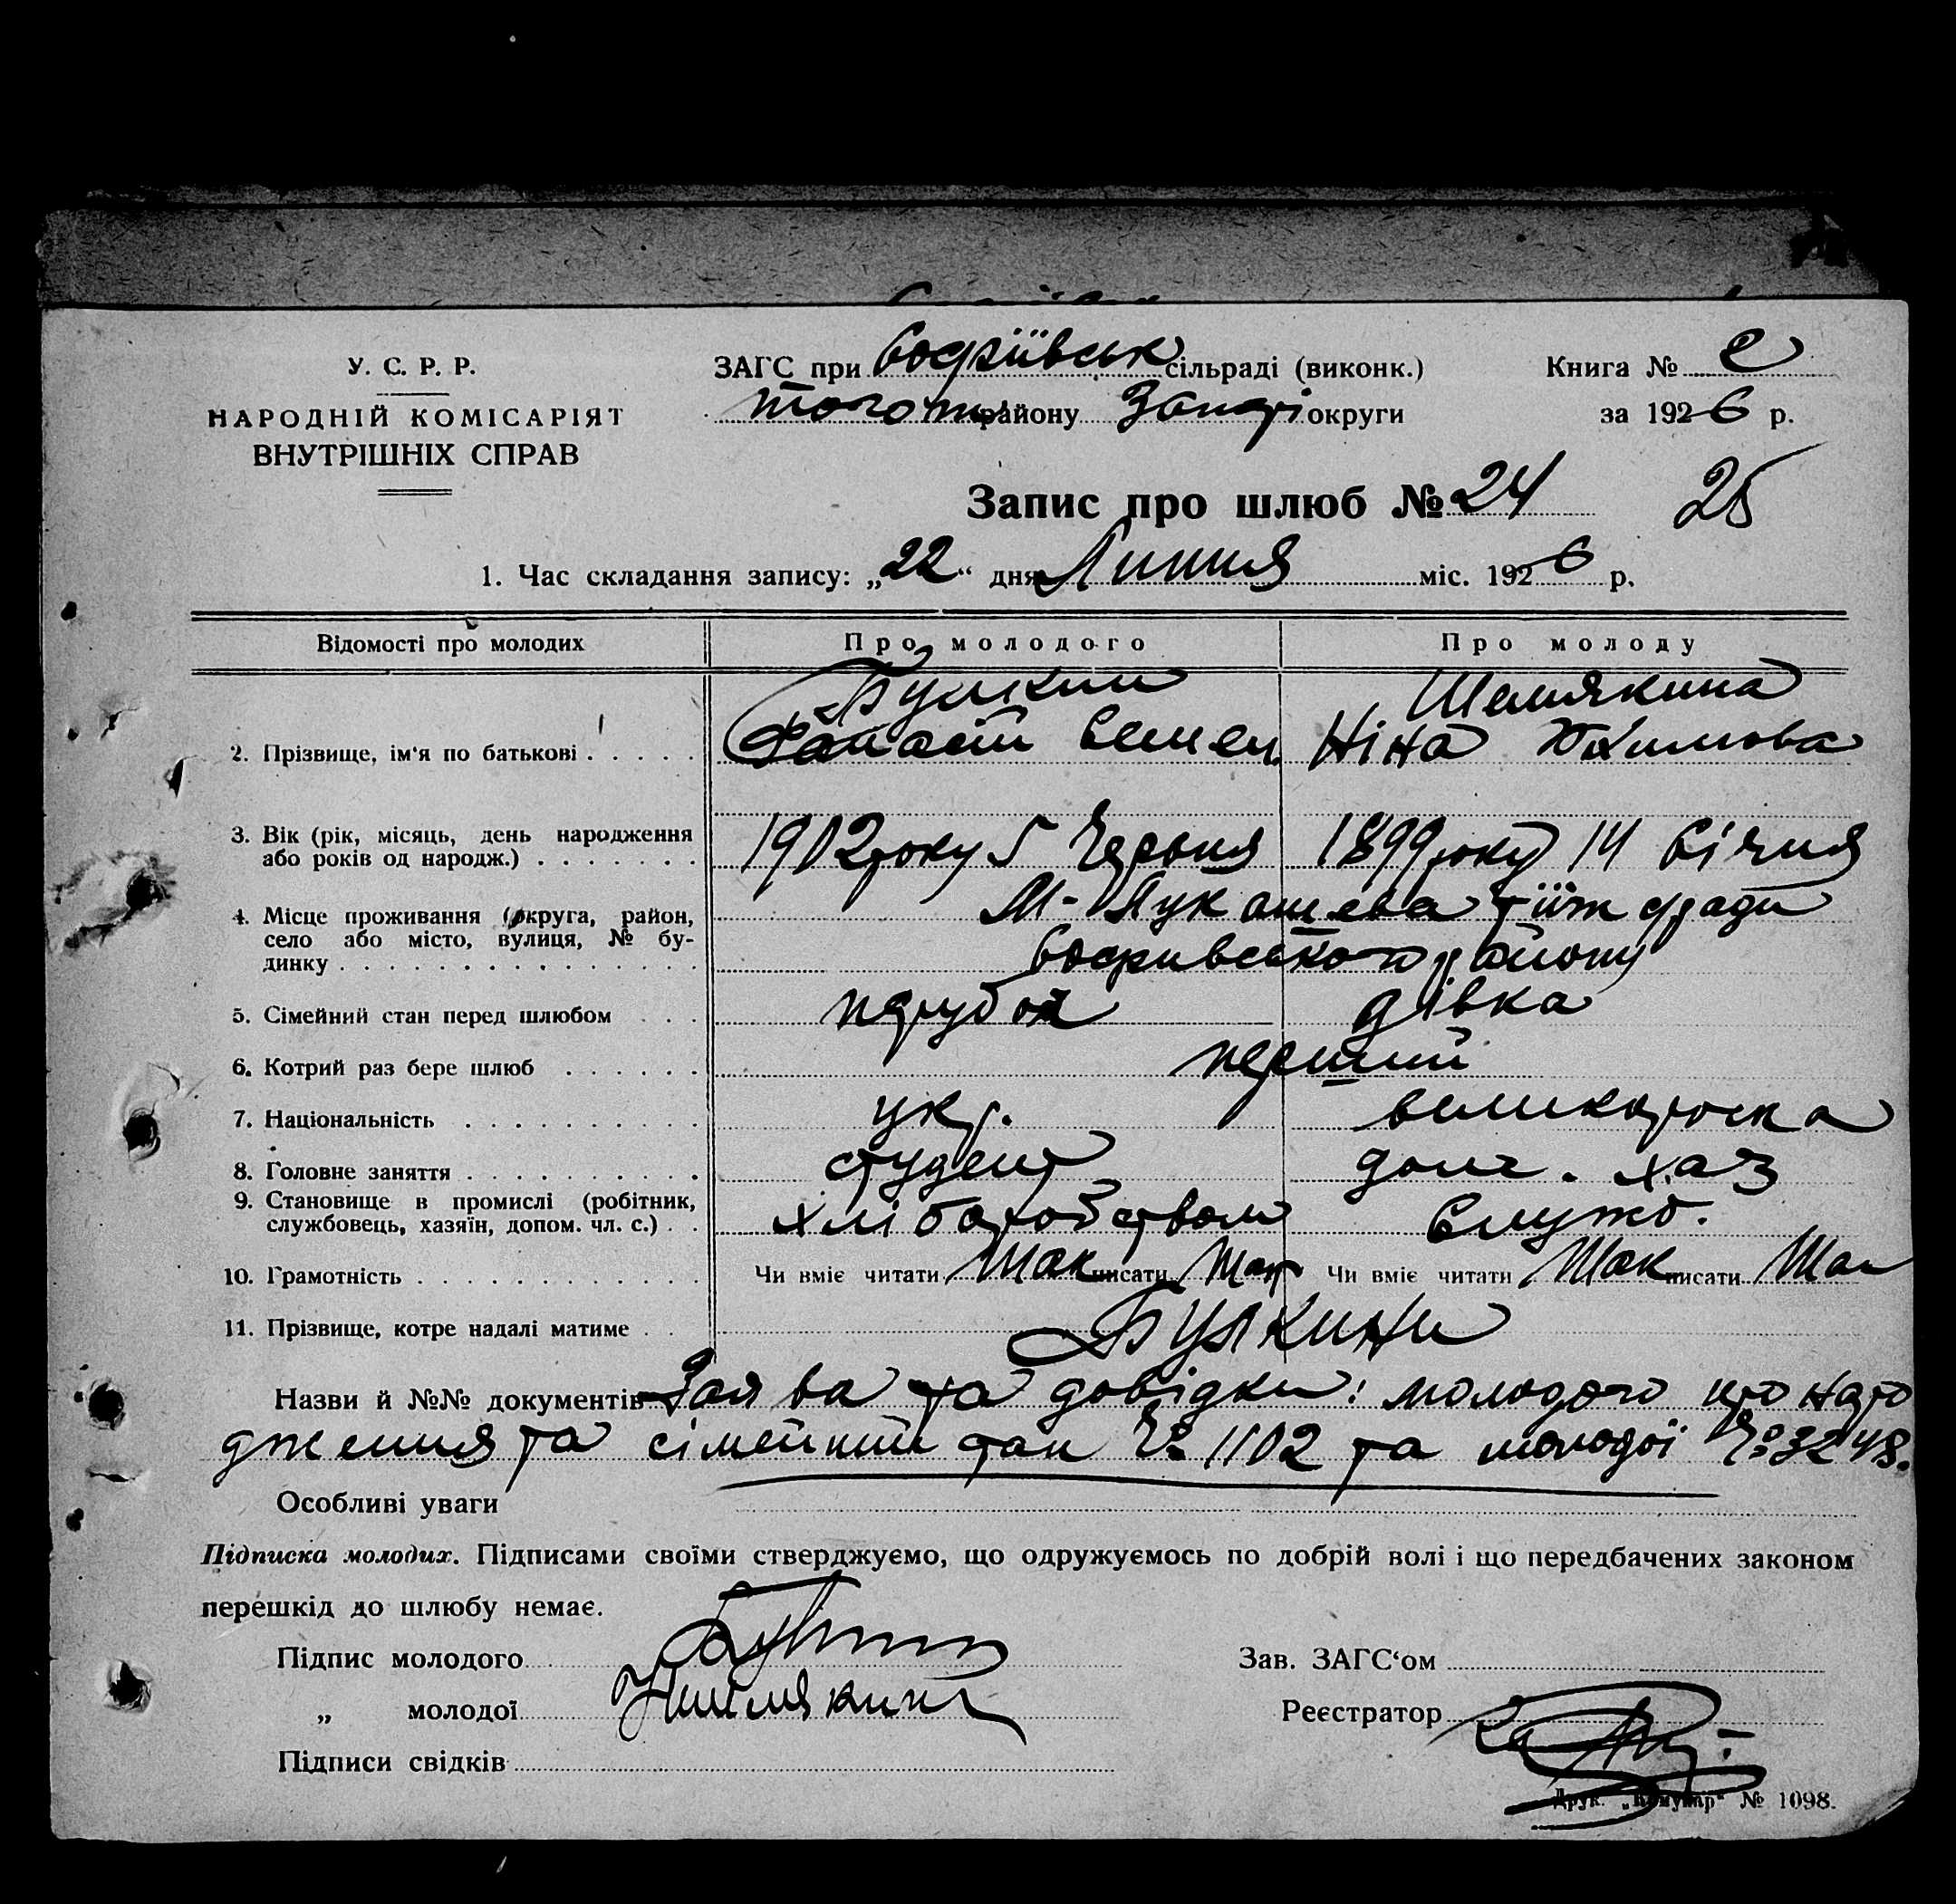 У. С. Р. Р.
НАРОДНІЙ КОМІСАРІЯТ
ВНУТРІШНІХ СПРАВ
ЗАГС при Софіївськ сільраді (виконк.)
того ж району Запор округи
Книга №
за 1926 р.
Запис про шлюб № 24
25
1. Час складання запису: „22“ дня Липня міс. 1926 р.
Відомості про молодих
Про молодого
Про молоду
2. Прізвище, ім'я по батькові
Булкин
Семен.
Шемякина
Ніна
3. Вік (рік, місяць, день народження
або років од народж.)
1902 року 5 Червня
1899 року 14 Січня
4. Місце проживання (округа, район,
село або місто, вулиця, № бу-
динку
М-Лукашева тіїж сради
району
5. Сімейний стан перед шлюбом
парубок
дівка
6. Котрий раз бере шлюб
перший
7. Національність
укр.
великороска
8. Головне заняття
студент
дом. хаз
9. Становище в промислі (робітник,
службовець, хазяїн, допом. чл. с.)
хліборобством
Служб.
10. Грамотність
Чи вміє читати Так писати Так
Чи вміє читати Так писати Так
11. Прізвище, котре надалі матиме
Булкини
Назви й №№ документів Заява та довідки: молодого про наро
дження та сімейний стан № 1102 та молодої № 3248.
Особливі уваги
Підписка молодих. Підписами своїми стверджуємо, що одружуємось по добрій волі і що передбачених законом
перешкід до шлюбу немає.
Підпис молодого
„ молодої Ншемякина
Підписи свідків
Зав. ЗАГС‘ом
Реєстратор
Друк. „Комунар“ № 1098.